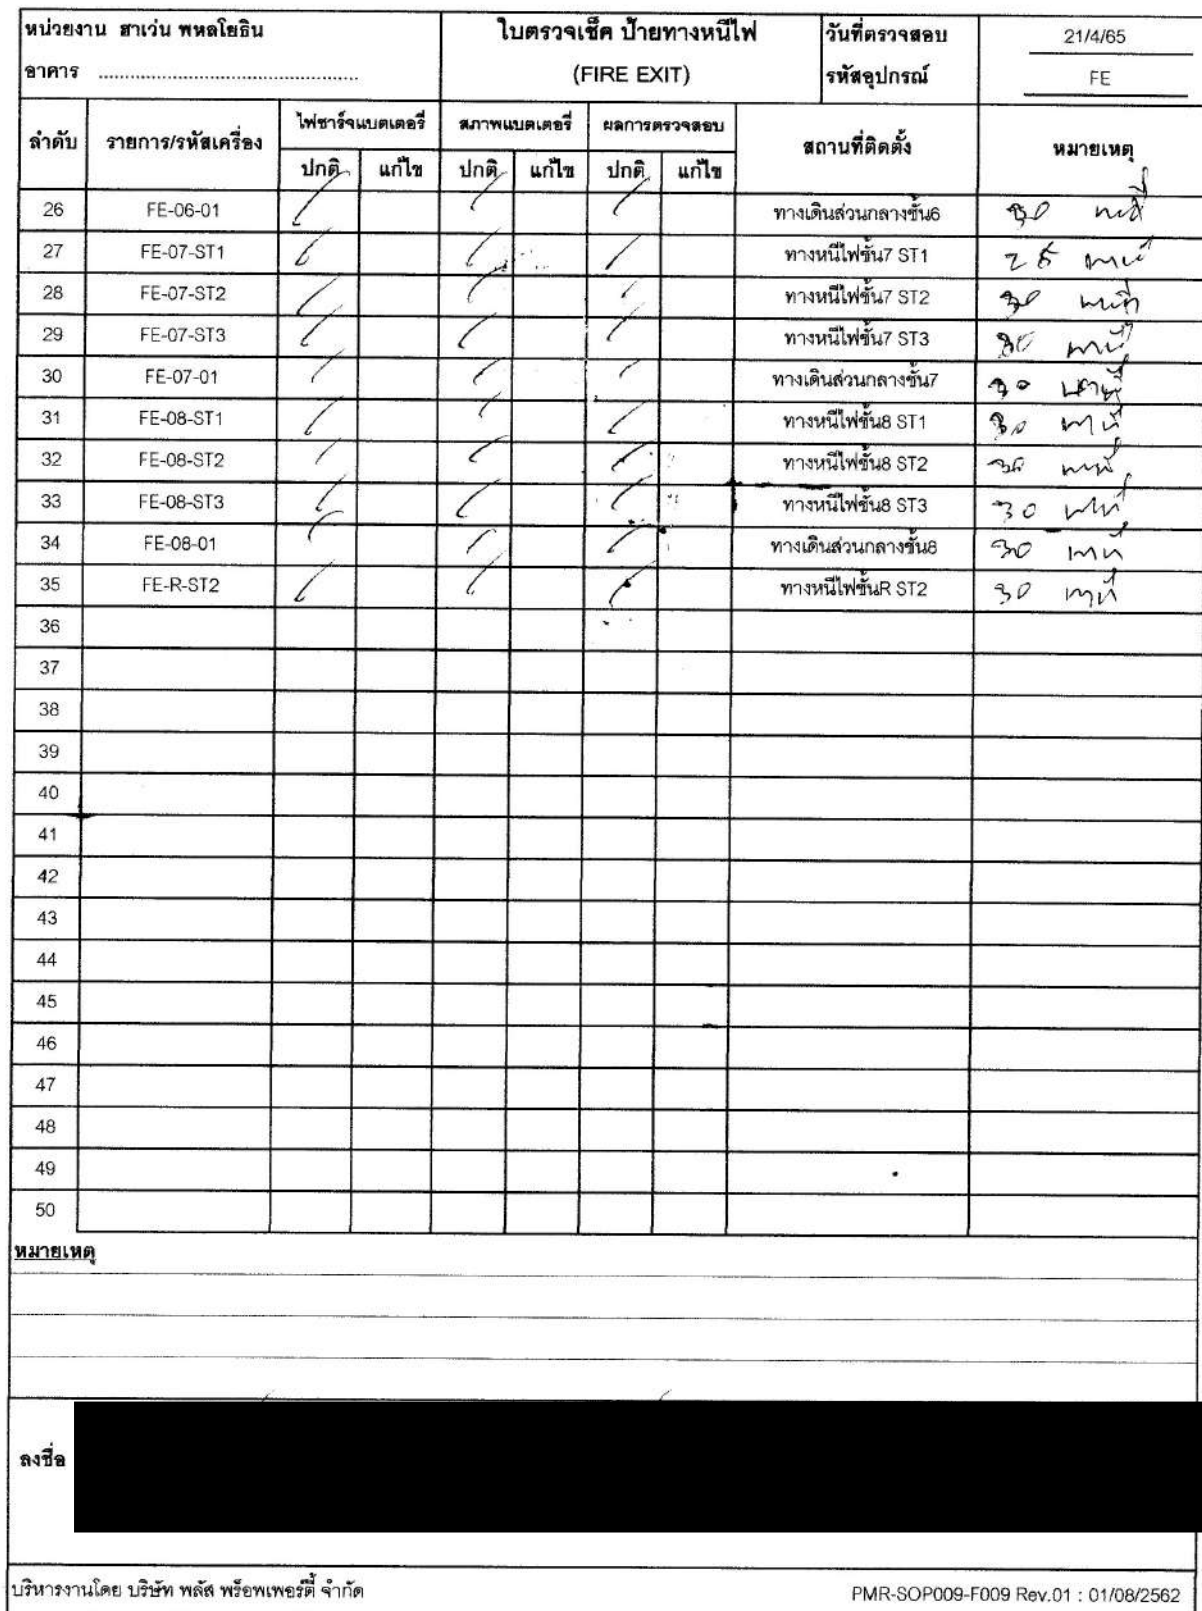 หน่วยงาน ฮาเว่น พหลโยธิน ใบตรวจเช็ค ป้ายทางหนีไฟ วันที่ตรวจสอบ 21/4/65
อาคาร ................................................ (FIRE EXIT) รหัสอุปกรณ์ FE
ลำดับ รายการ/รหัสเครื่อง ไฟชาร์จแบตเตอรี่ สภาพแบตเตอรี่ ผลการตรวจสอบ สถานที่ติดตั้ง หมายเหตุ
ปกติ แก้ไข ปกติ แก้ไข ปกติ แก้ไข
26 FE-06-01 / / / ทางเดินส่วนกลางชั้น6 30 นาที
27 FE-07-ST1 / / / ทางหนีไฟชั้น7 ST1 25 นาที
28 FE-07-ST2 / / / ทางหนีไฟชั้น7 ST2 30 นาที
29 FE-07-ST3 / / / ทางหนีไฟชั้น7 ST3 30 นาที
30 FE-07-01 / / / ทางเดินส่วนกลางชั้น7 30 นาที
31 FE-08-ST1 / / / ทางหนีไฟชั้น8 ST1 30 นาที
32 FE-08-ST2 / / / ทางหนีไฟชั้น8 ST2 30 นาที
33 FE-08-ST3 / / / ทางหนีไฟชั้น8 ST3 30 นาที
34 FE-08-01 / / / ทางเดินส่วนกลางชั้น8 30 นาที
35 FE-R-ST2 / / / ทางหนีไฟชั้นR ST2 30 นาที
36
37
38
39
40
41
42
43
44
45
46
47
48
49
50
หมายเหตุ
ลงชื่อ
บริหารงานโดย บริษัท พลัส พร็อพเพอร์ตี้ จำกัด PMR-SOP009-F009 Rev.01 : 01/08/2562